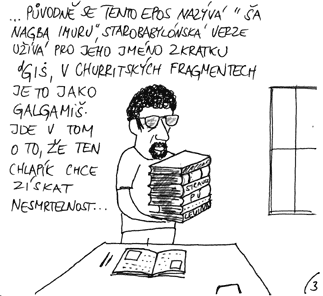 ... PŮVODNĚ SE TENTO EPOS NAZÝVÁ "ŠA
NAGBA IMURU", STAROBABYLÓNSKÁ VERZE
UŽÍVÁ PRO JEHO JMÉNO ZKRATKU
dGIŠ, V CHURRITSKÝCH FRAGMENTECH
JE TO JAKO
GALGAMIŠ.
JDE V TOM
O TO, ŽE TEN
CHLAPÍK CHCE
ZÍSKAT
NESMRTELNOST...
3